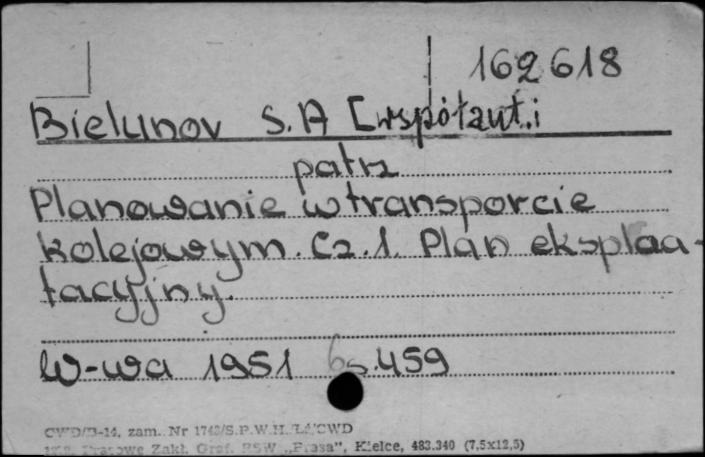 162618
Bielunov S.A [współaut.i
patrz
Planowanie w transporcie
kolejowym. Cz.1. Plan eksploa-
tacyjny.
W-wa 1951 s.459
CWD/B-14, zam. Nr 1743/S.P.W.H. /CWD
Zakł. Graf. RSW „Prasa”, Kielce, 483.340 (7,5x12,5)